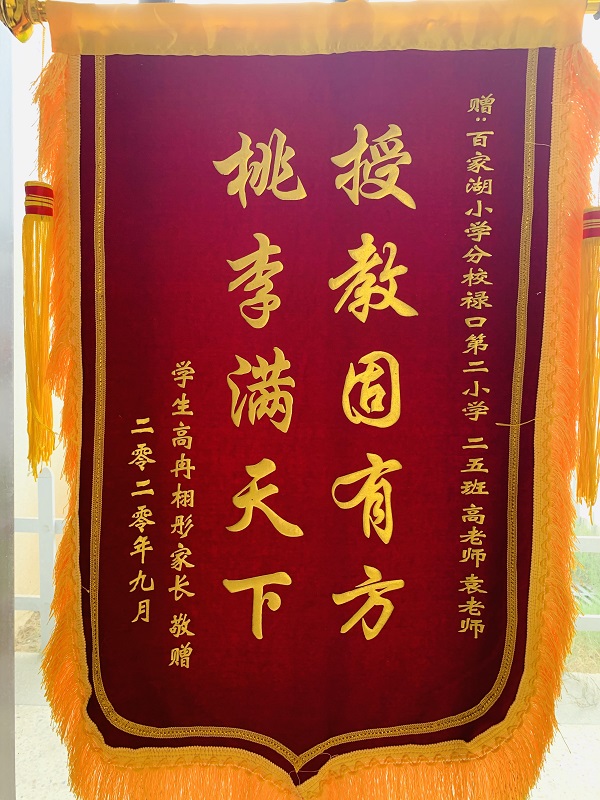 赠:百家湖小学分校禄口第二小学 二五班 高老师 袁老师
授教固有方
桃李满天下
学生高冉栩彤家长 敬赠
二零二零年九月